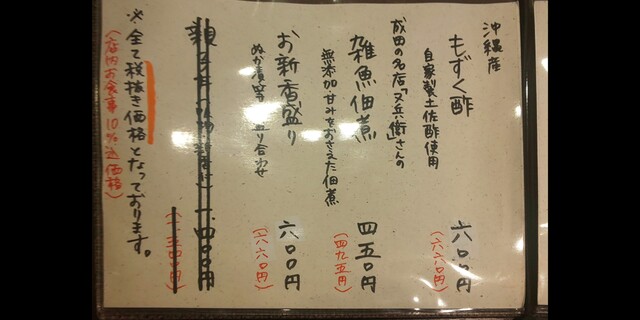 沖縄産
もずく酢
自家製土佐酢使用
六〇〇円
(六六〇円)
成田の名店「又兵衛」さんの
雑魚佃煮
無添加・甘みをおさえた佃煮
四五〇円
(四九五円)
お新香盛り
ぬか漬等 盛り合わせ
六〇〇円
(六六〇円)
※全て税抜き価格となっております。
(店内お食事10%込価格)